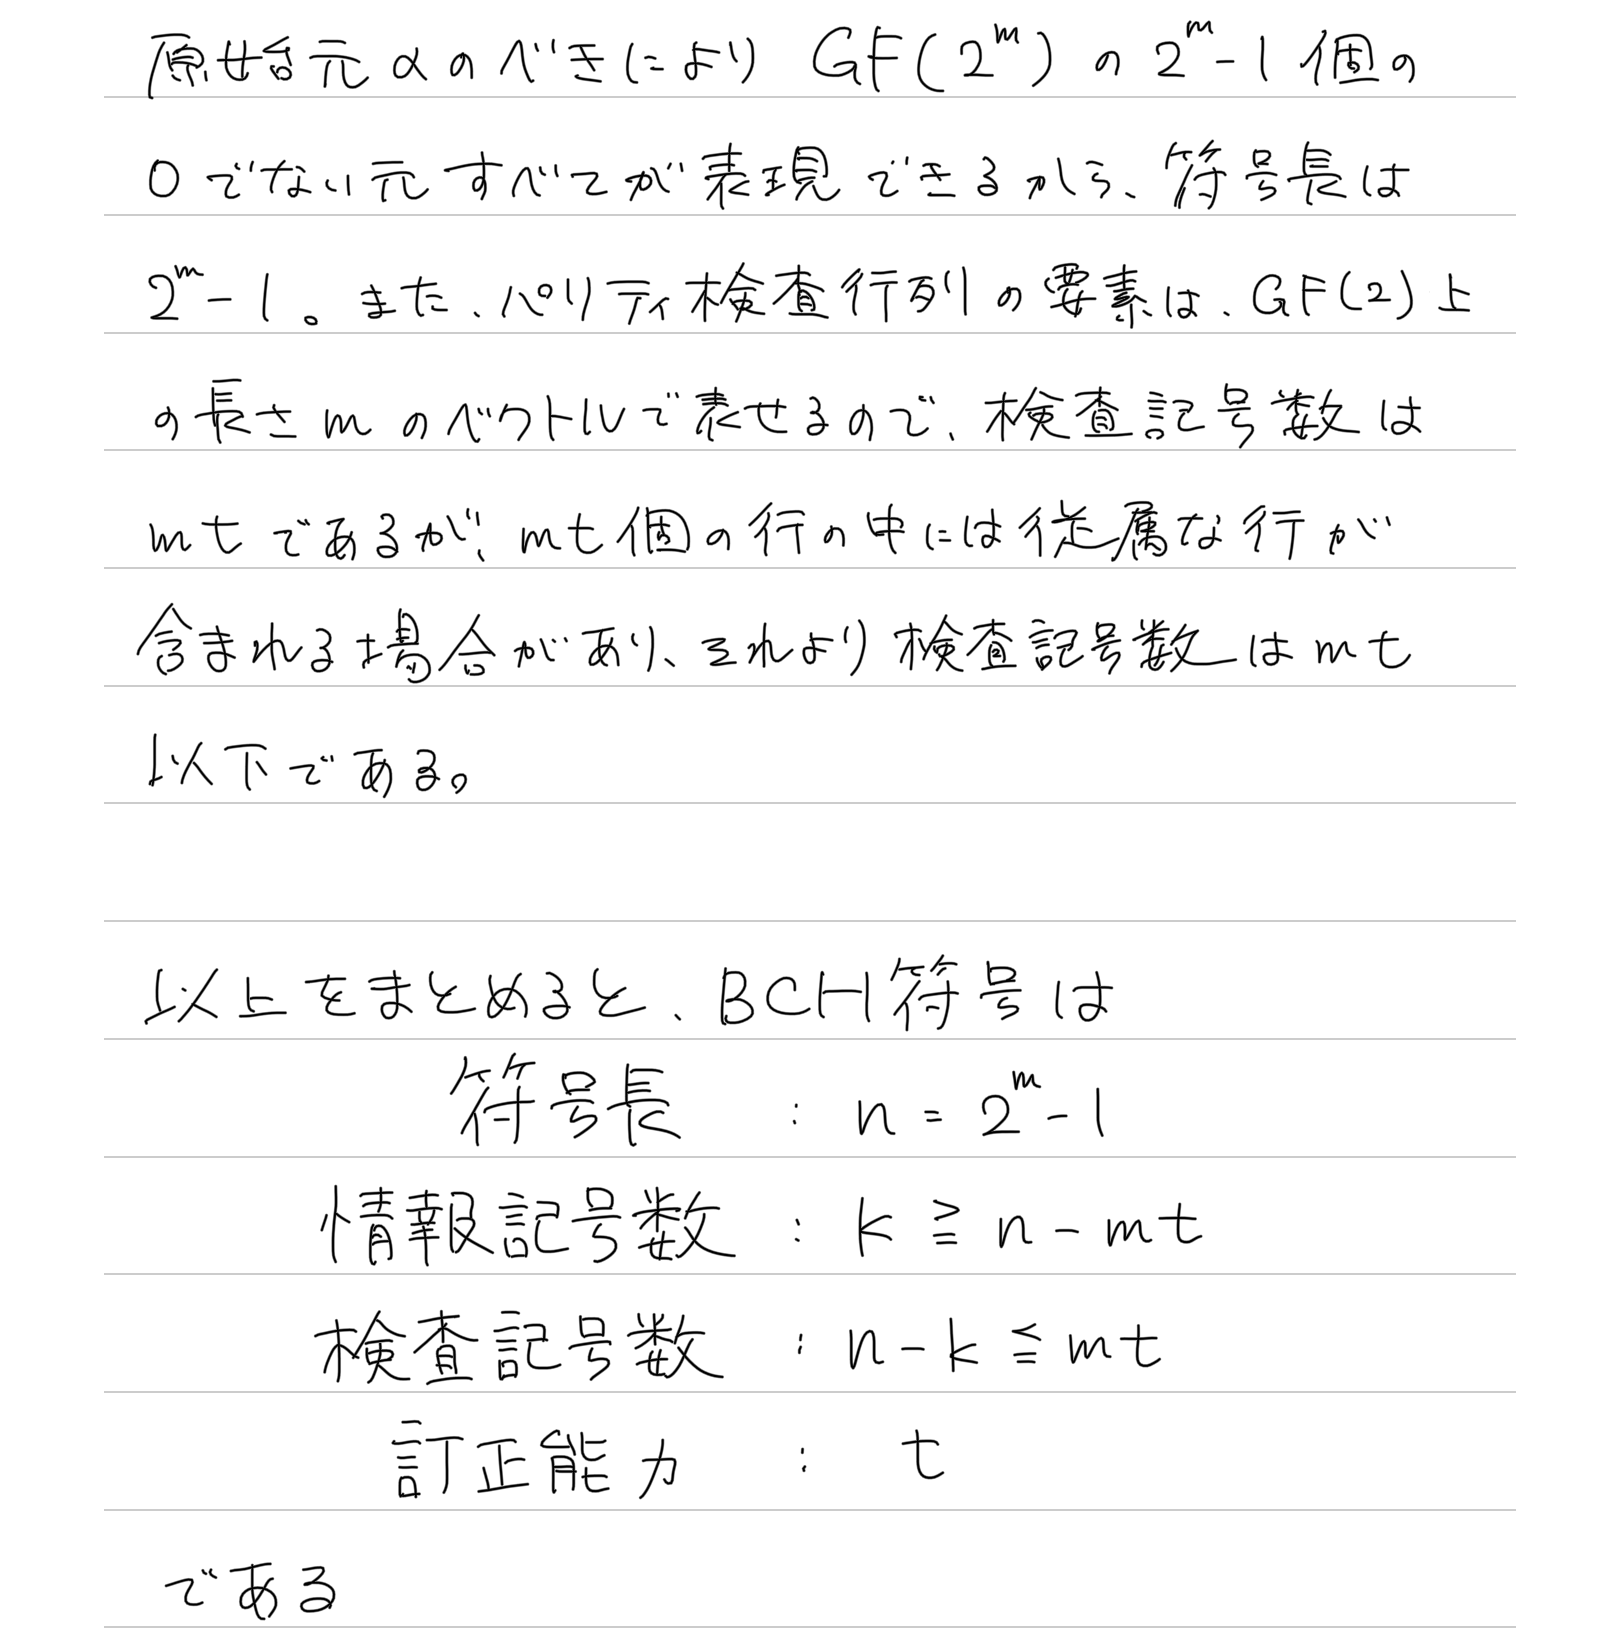 原始元 α のべきにより GF(2^m) の 2^m - 1 個の
0 でない元すべてが表現できるから、符号長は
2^m - 1 。また、パリティ検査行列の要素は、GF(2)上
の長さ m のベクトルで表せるので、検査記号数は
mt であるが、mt個の行の中には従属な行が
含まれる場合があり、それより検査記号数は mt
以下である。
以上をまとめると、BCH符号は
符号長 : n = 2^m - 1
情報記号数 : k ≧ n - mt
検査記号数 : n - k ≦ mt
訂正能力 : t
である